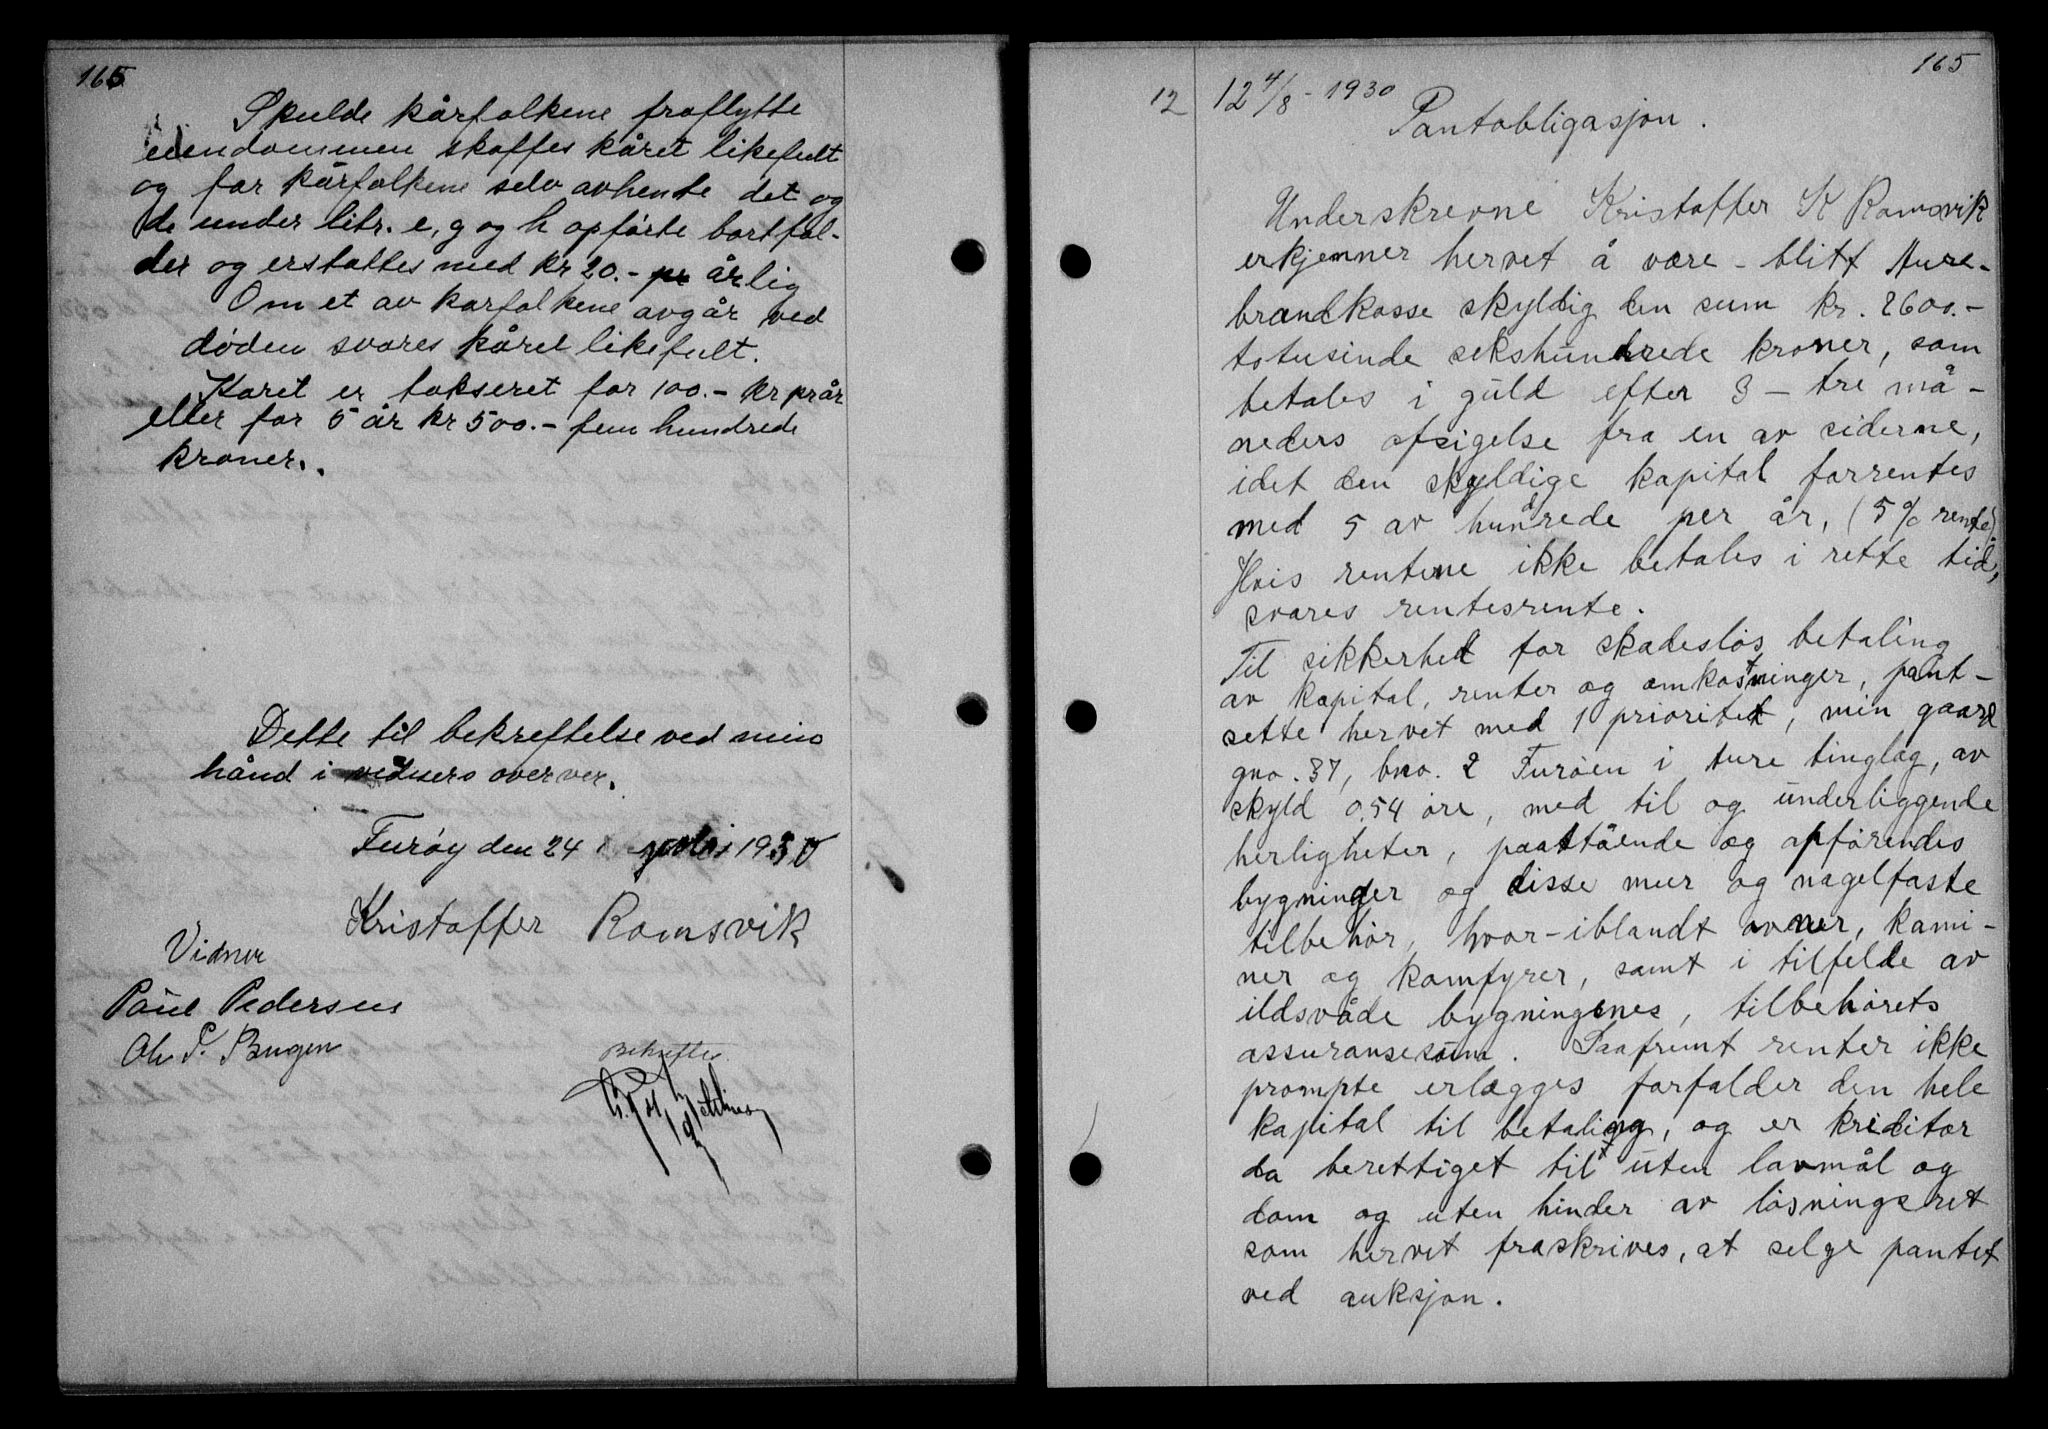 165
Skulde kårfolkene fraflytte
eiendommen skaffes kåret likefult
og får kårfolkene selv avhente det og
de under litr. e, g og h opførte bortfal-
der og erstattes med kr 20.- pr årlig
Om et av kårfolkene avgår ved
døden svares kåret likefult.
Karet er takseret for 100.- kr pr år
eller for 5 år kr 500.- fem hundrede
kroner.
Dette til bekreftelse ved min
hånd i vidners overver.
Furøy den 24 juli 1930
Kristoffer Romsvik
Vidner
Paul Pedersen
Ole P. Bugen
Bekrefter
165
12 12 4/8 - 1930
Pantobligasjon.
Underskrevne Kristoffer K Romsvik
erkjenner hervet å være - blitt Aure-
brandkasse skyldig den sum kr. 2600.-
totusinde sekshundrede kroner, som
betales i guld efter 3 - tre må-
neders opsigelse fra en av siderne,
idet den skyldige kapital forrentes
med 5 av hundrede per år, (5% rente)
Hvis rentene ikke betales i rette tid,
svares rentesrente.
Til sikkerhed for skadesløs betaling
av kapital, renter og omkostninger, pant-
sette hervet med 1 prioritet, min gaard
gno. 37, bno. 2 Furøen i ture tinglag, av
skyld 0,54 øre, med til og underliggende
herligheter, paastående og opførendes
bygninger og disse mur og nagelfaste
tilbehør, hvor-iblandt ovner, kami-
ner og komfyrer, samt i tilfelde av
ildsvåde bygningenes, tilbehørets
assuransesum. Saafremt renter ikke
prompte erlægges forfalder den hele
kapital til betaling, og er kreditor
da berettiget til uten lovmål og
dom og uten hinder av løsningsret
som hervet fraskrives, at selge pantet
ved auksjon.